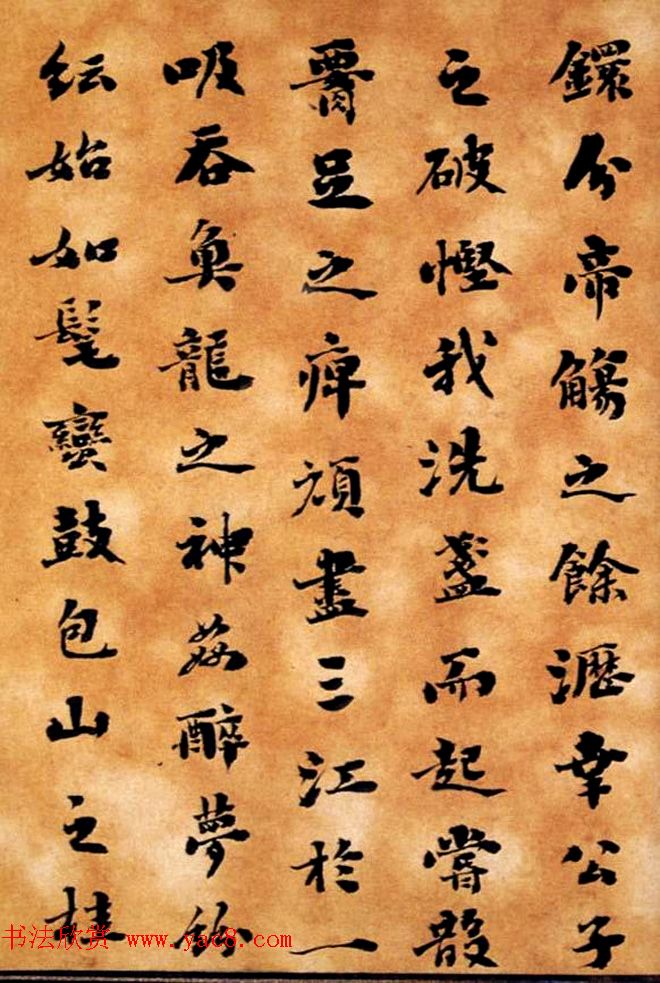 鐶分帝觴之餘瀝幸公子
之破慳我洗盞而起嘗散
腰足之痺頑盡三江於一
吸吞魚龍之神姦醉夢紛
紜始如髦蠻鼓包山之桂
书法欣赏 www.yac8.com